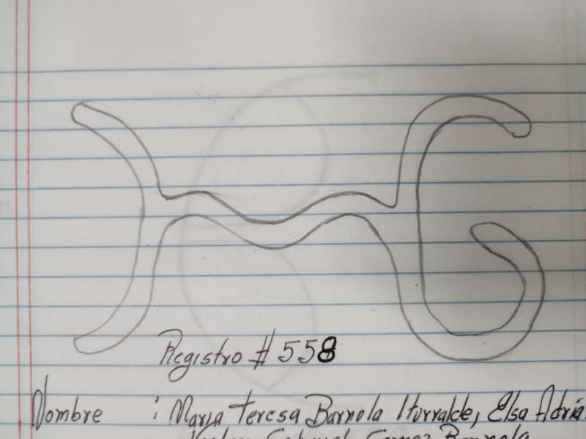 Registro # 558
Nombre : Maria Teresa Barnola Iturralde, Elsa Adria
Gomez Barnola